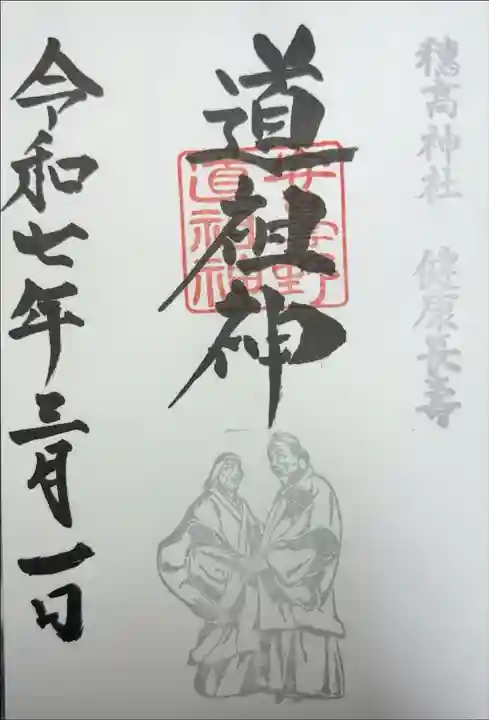 穂高神社 健康長寿
道祖神
安曇野
道祖神
令和七年三月一日